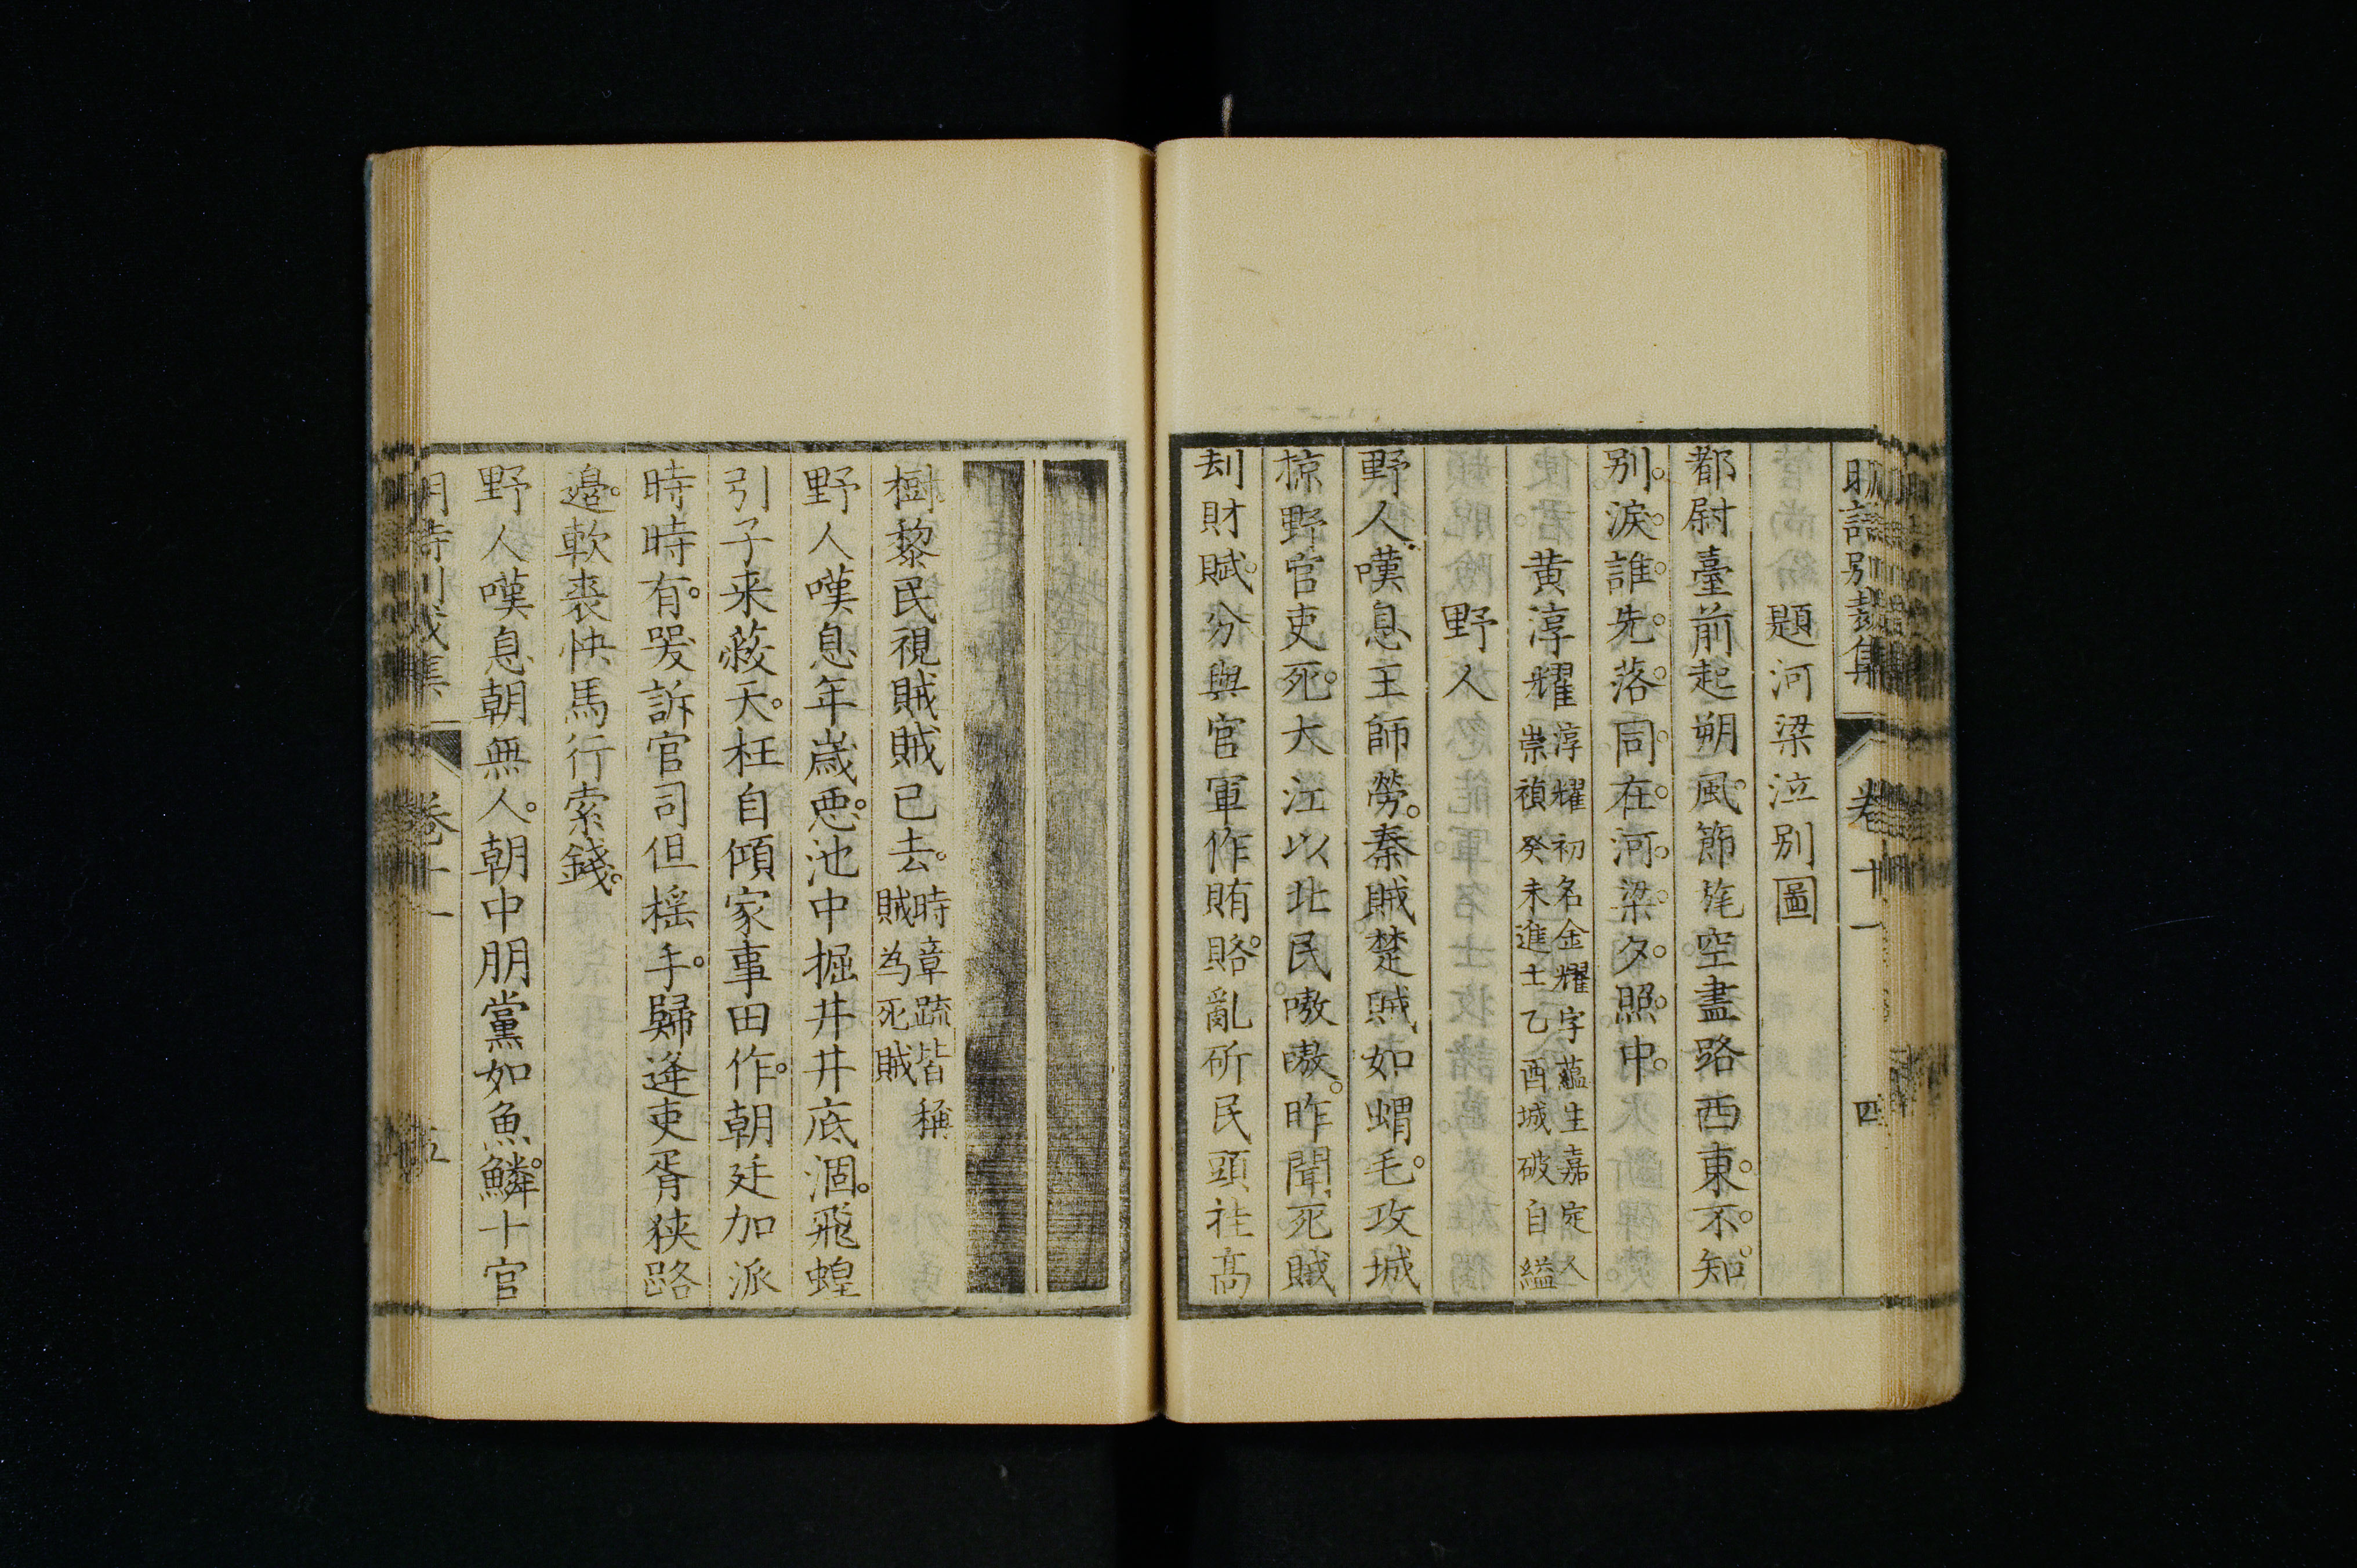 明詩別裁集 卷十一 四
題河梁泣別圖
都尉臺前起朔風。節旄空盡路西東。不。知。
別。淚。誰。先。落。同。在。河。梁。夕。照。中。
黃淳耀
淳耀初名金耀字蘊生嘉定人
崇禎癸未進士乙酉城破自縊
野人
野人嘆息王師勞。秦賊楚賊如蝟毛。攻城
掠野官吏死。大江以北民嗷嗷。昨聞死賊
刦財賦。分與官軍作賄賂。亂斫民頭挂高
樹黎民視賊賊已去。
時章疏皆稱
賊為死賊
野人嘆息年歲惡。池中掘井井底涸。飛蝗
引子来蔽天。枉自傾家事田作。朝廷加派
時時有。哭訴官司但摇手。歸逢吏胥狹路
邊。軟裘快馬行索錢。
野人嘆息朝無人。朝中朋黨如魚鱗。十官
明詩別裁集 卷十一 五